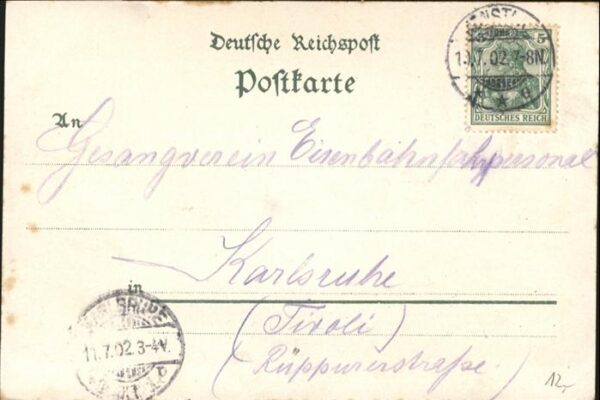 Deutsche Reichspost
Postkarte
5
7.02.7-8N.
DEUTSCHES REICH
An
Gesangverein Eisenbahnfahrpersonal
Karlsruhe
in
(Tivoli)
Rüppurrerstraße.
11.7.02.3-4V.
12,-